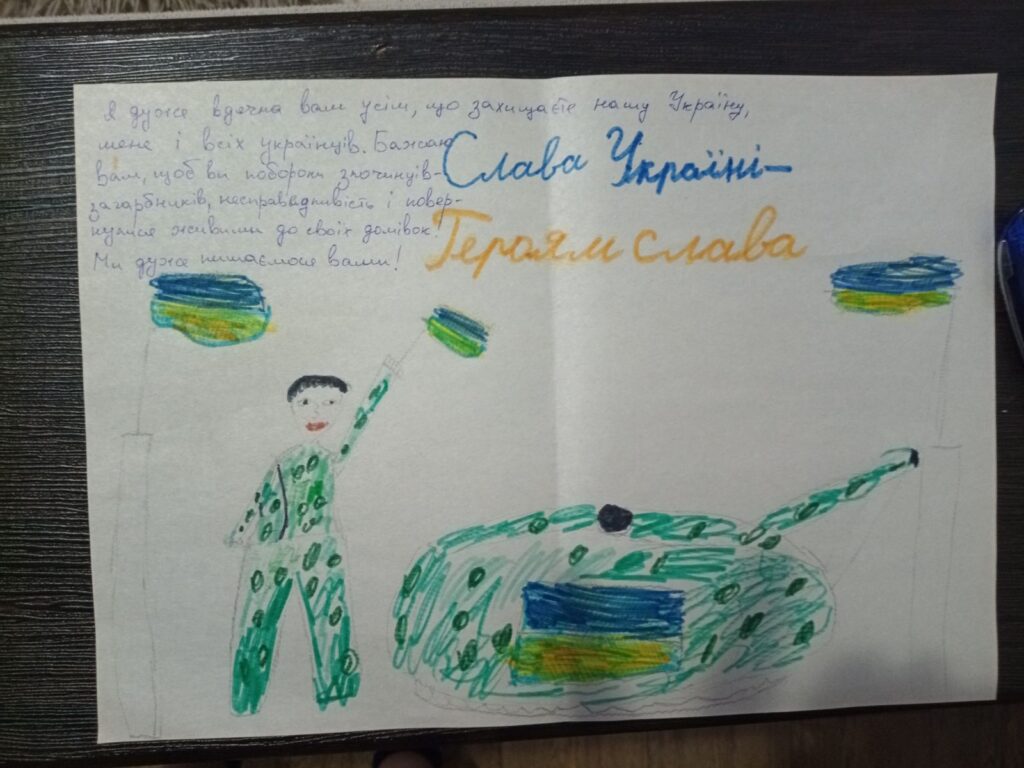 Я дуже вдячна вам усім, що захищаєте нашу Україну,
мене і всіх українців. Бажаю
вам, щоб ви побороли злочинців-
загарбників, несправедливість і повер-
нулися живими до своїх домівок!
Ми дуже пишаємося вами!
Слава Україні–
Героям слава